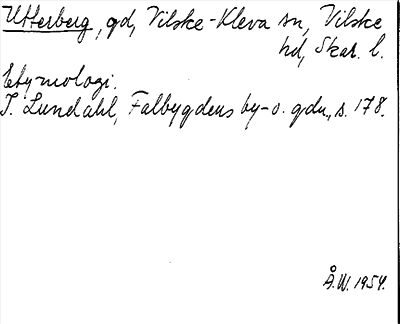 Utterberg, gd, Vilske-Kleva sn, Vilske
hd, Skar. l.
Etymologi.
I. Lundahl, Falbygdens by- o. gdn., s. 178.
Å.W. 1954.